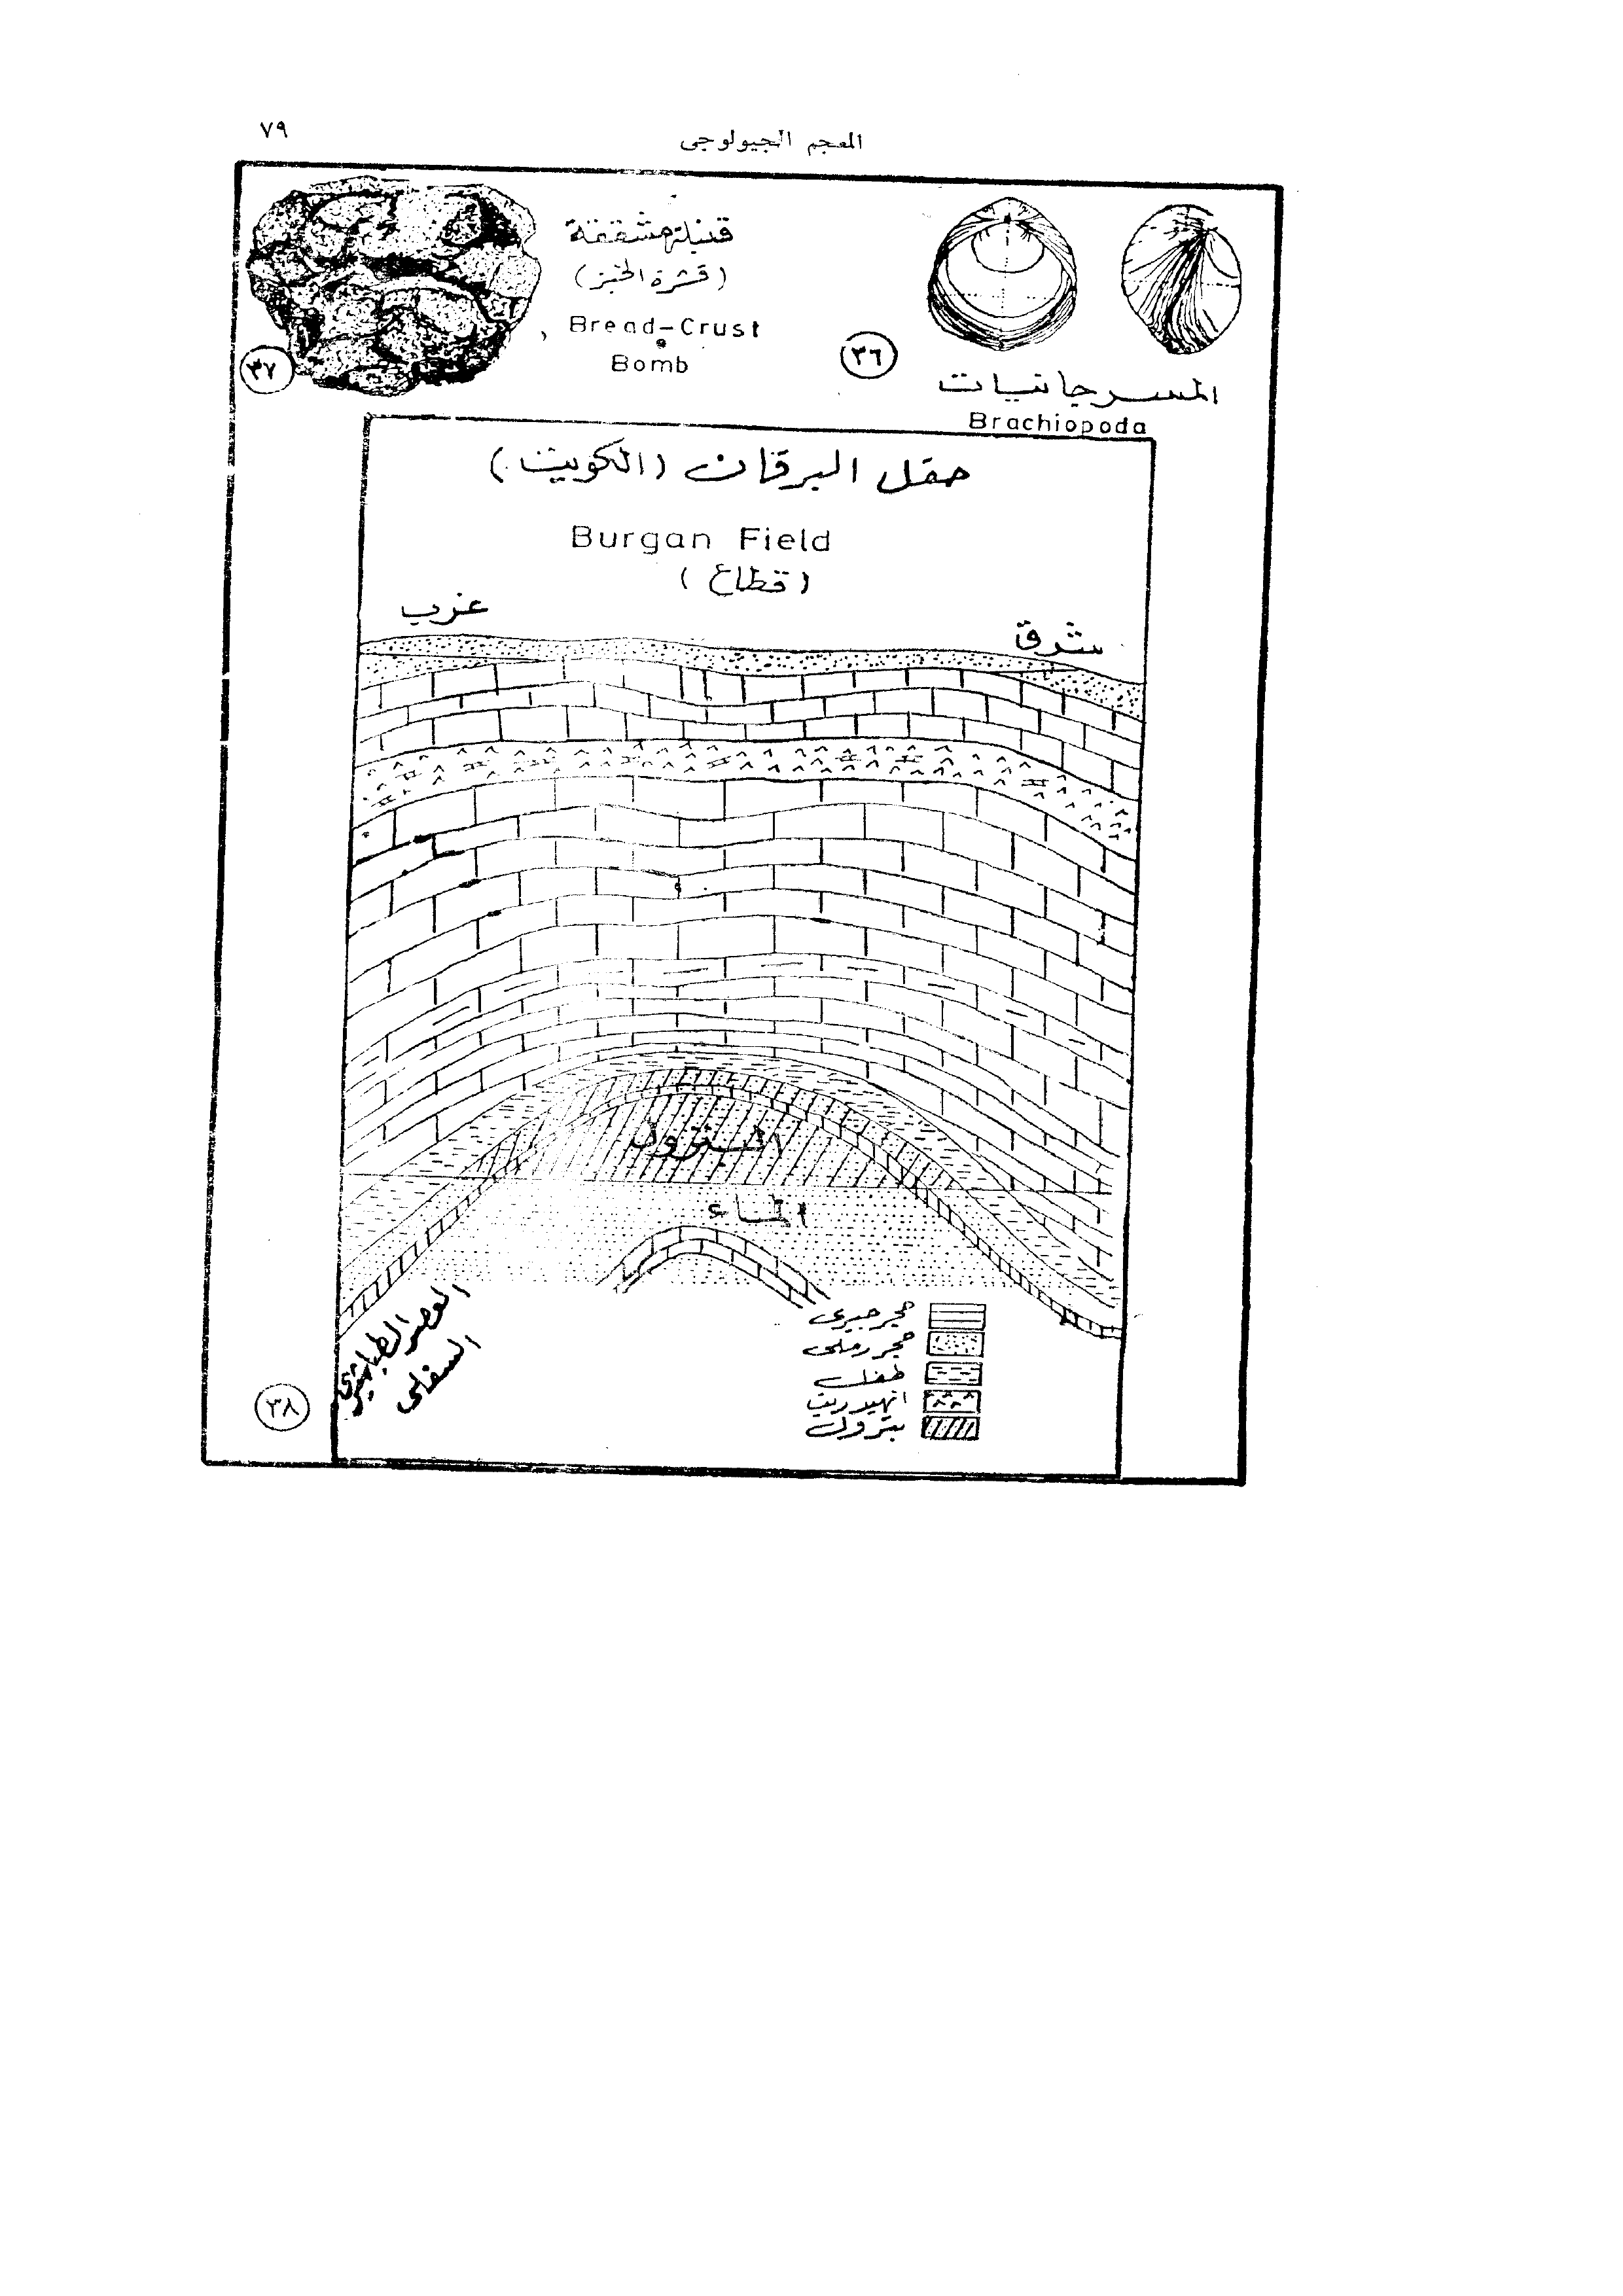 ٧٩
المعجم الجيولوجى
قنبلة مشققة
(قشرة الخبز)
Bread-Crust
Bomb
٣٧
٣٦
المسرجانيات
Brachiopoda
حقل البرقان (الكويت)
Burgan Field
(قطاع)
غرب
شرق
البترول
الماء
العصر الطباشيرى
السفلى
حجر جيرى
حجر رملى
طفل
انهيدريت
بترول
٣٨